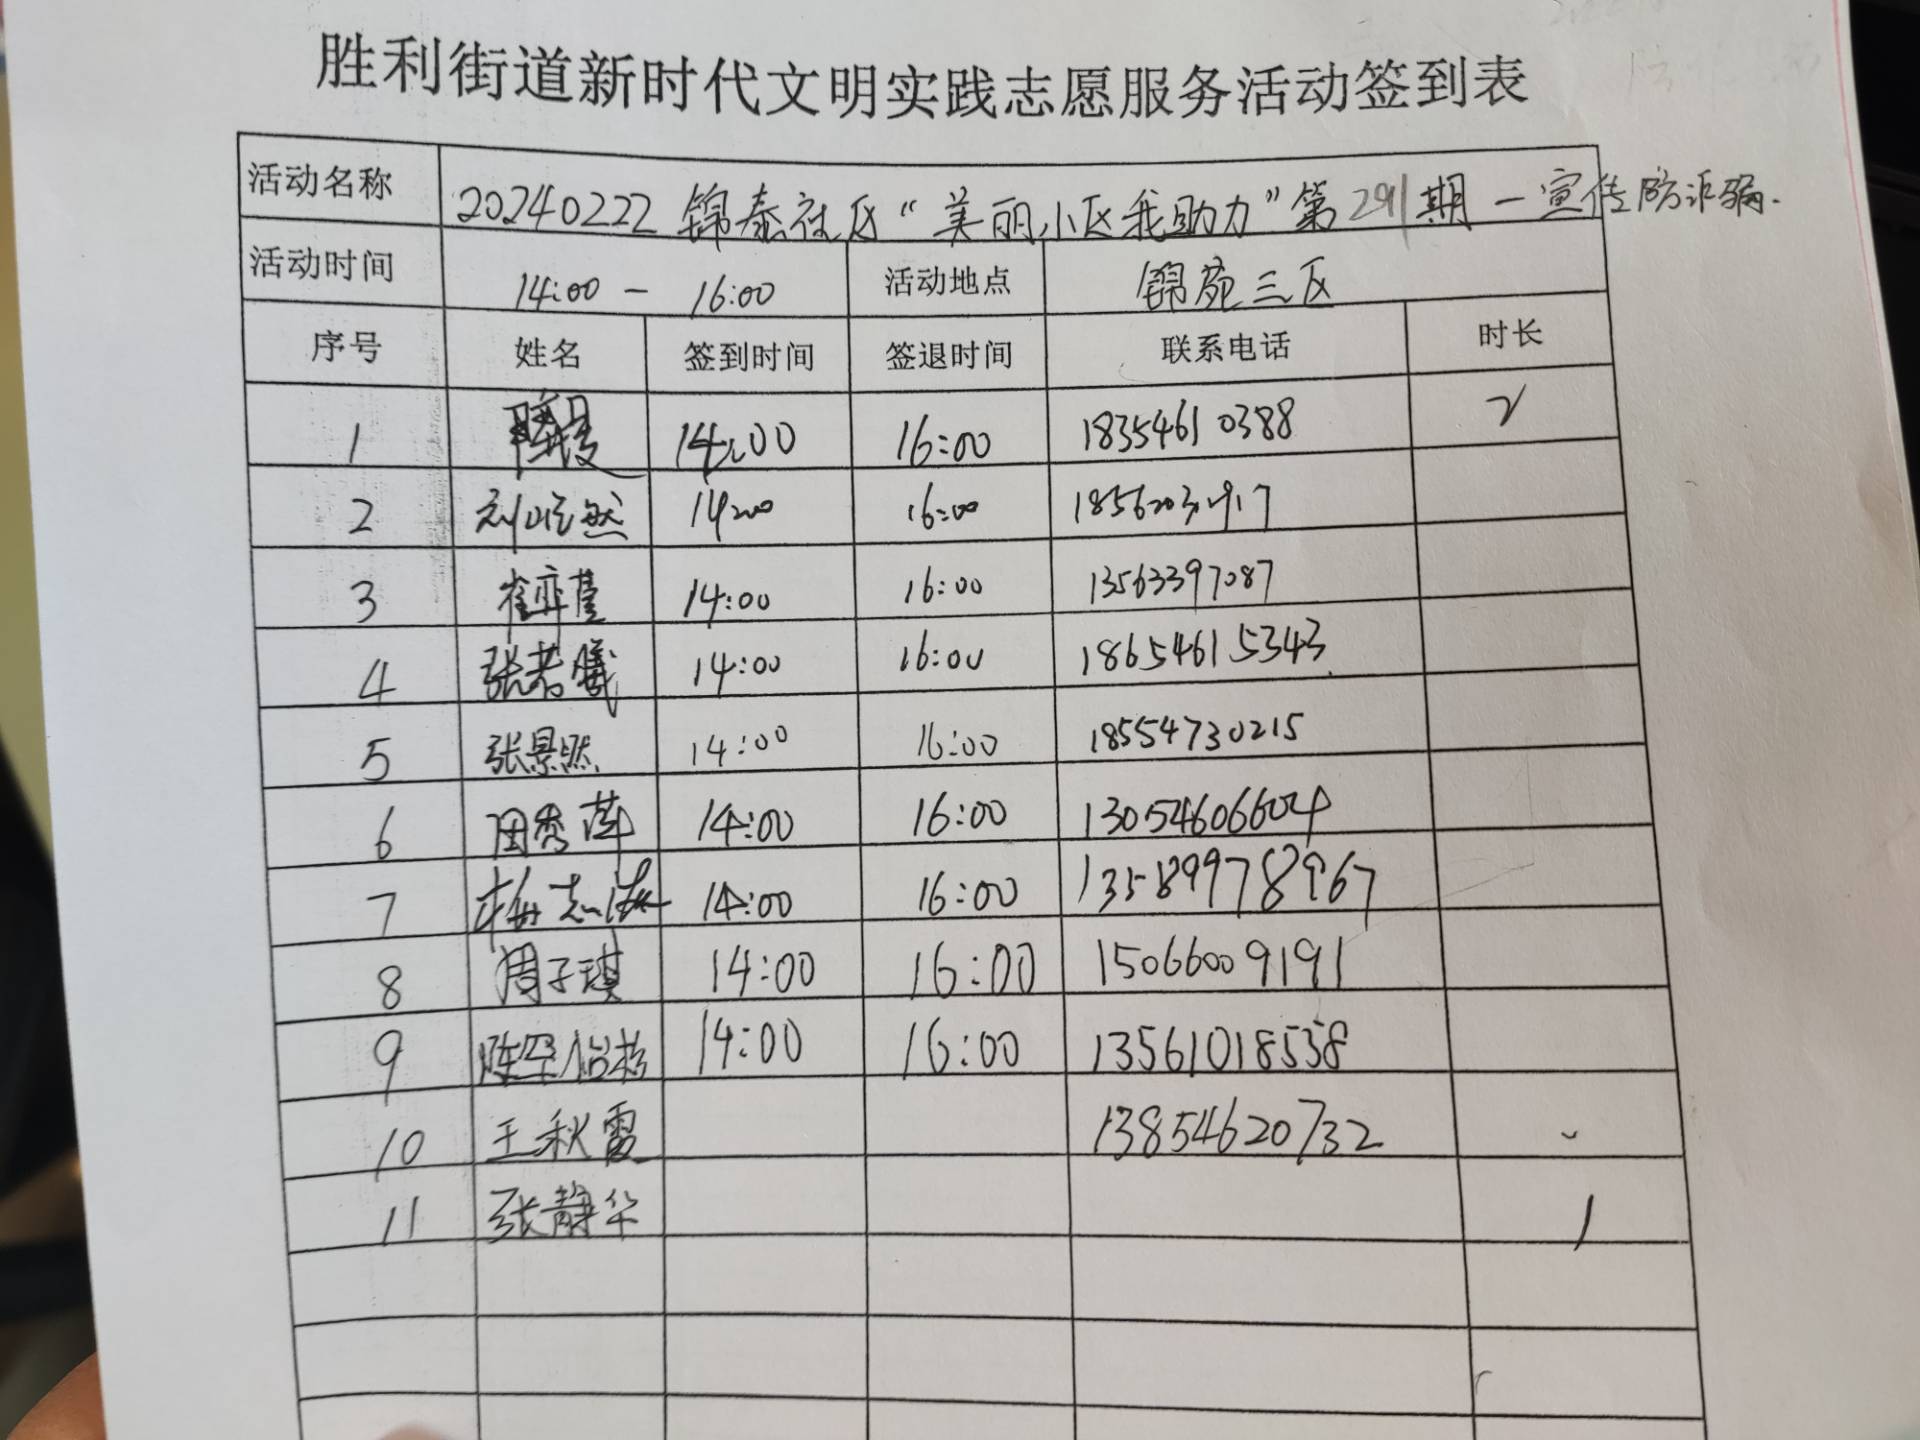 胜利街道新时代文明实践志愿服务活动签到表
活动名称 20240222 锦泰社区“美丽小区我助力”第291期一宣传防诈骗.
活动时间 14:00 - 16:00 活动地点 锦苑三区
序号 姓名 签到时间 签退时间 联系电话 时长
1 14:00 16:00 18354610388 2
2 刘屹然 14:00 16:00
3 崔弈 14:00 16:00 13563397087
4 张若曦 14:00 16:00 18654615343
5 张景然 14:00 16:00 18554730215
6 田秀萍 14:00 16:00 13054606604
7 梅志 14:00 16:00 13589978967
8 周子琪 14:00 16:00 15066009191
9 14:00 16:00 13561018538
10 王秋霞 13854620732
11 张静华